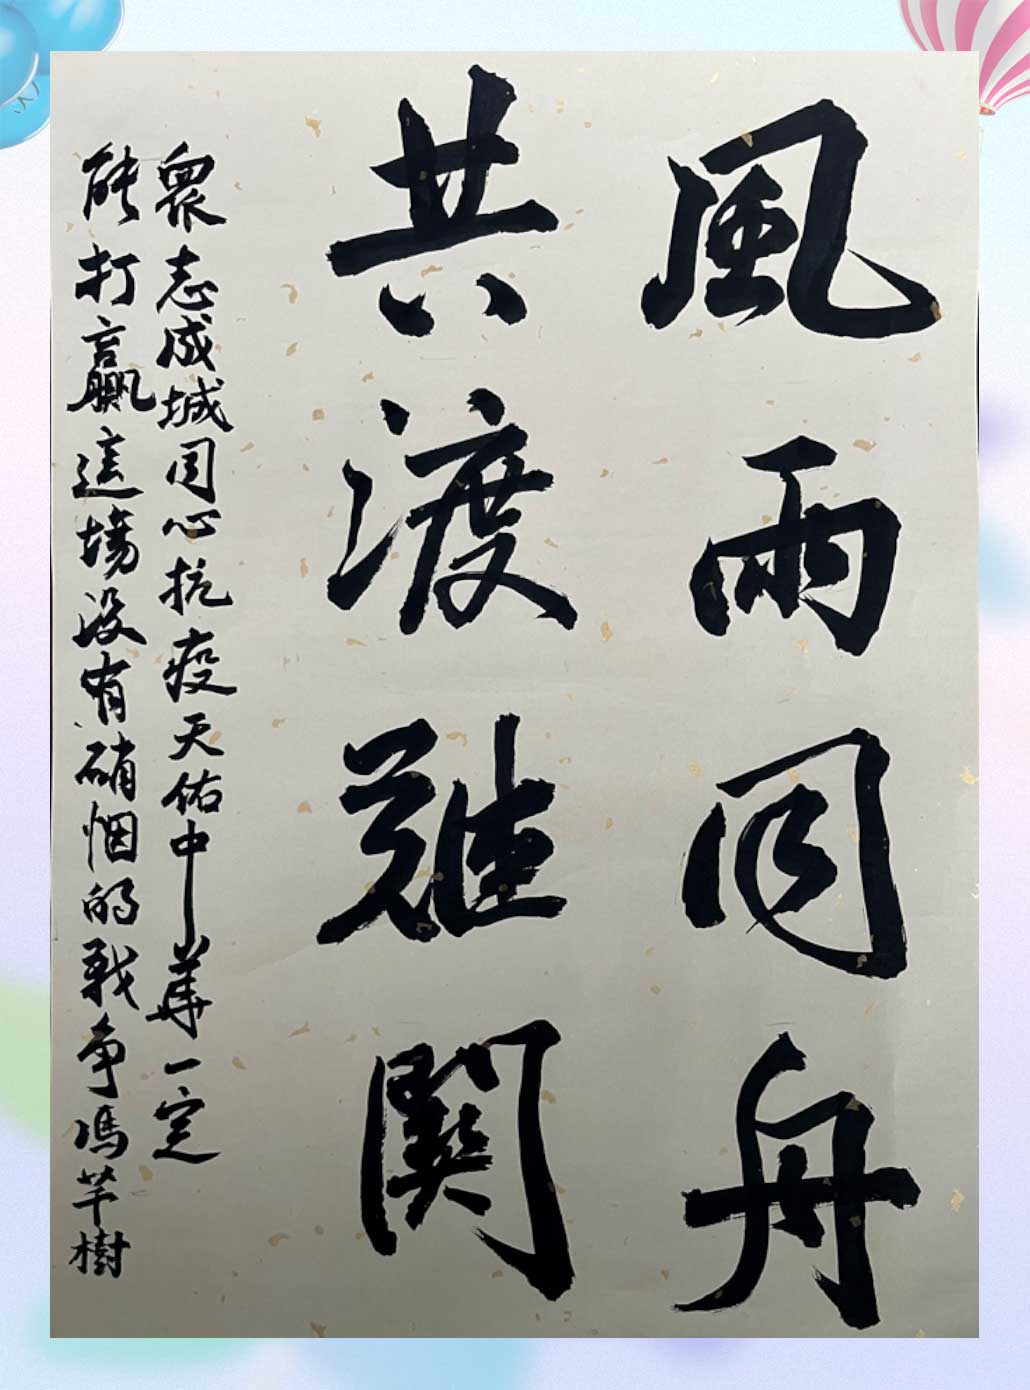 風雨同舟
共渡難關
衆志成城同心抗疫天佑中華一定
能打贏這場没有硝烟的戰争馮芊樹